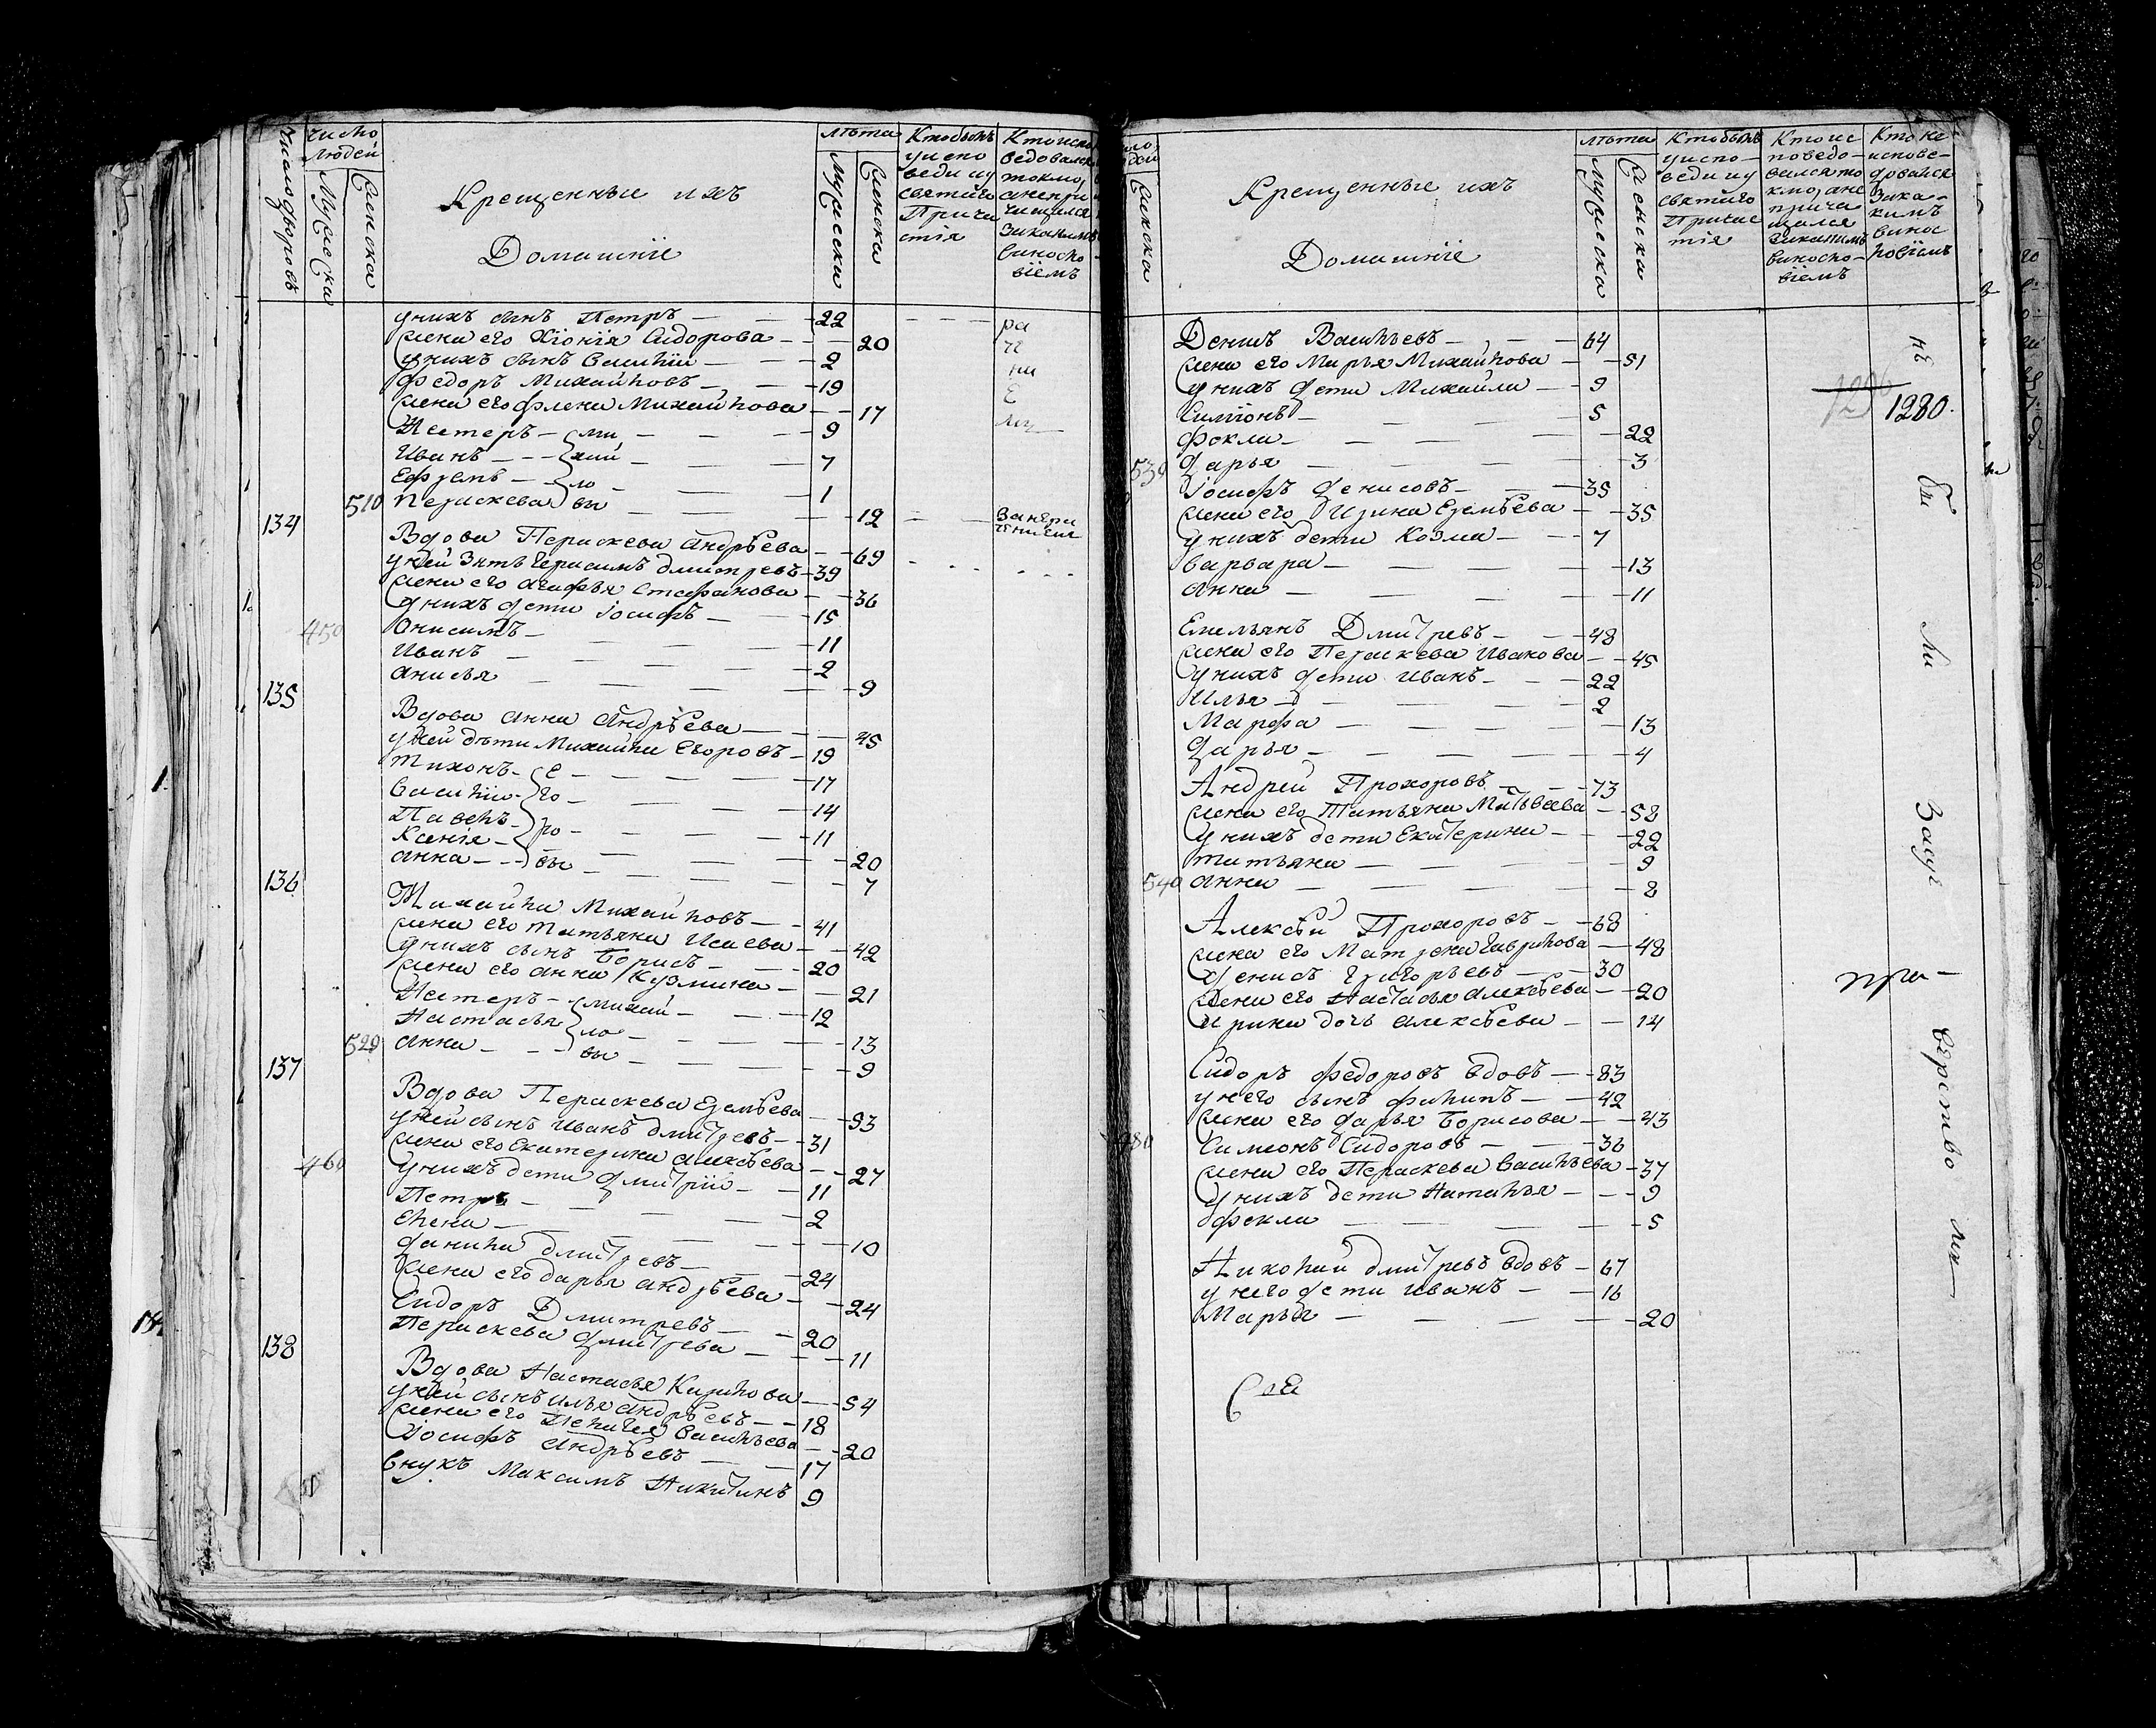 Число дворовъ
число людей
Мужеска
Женска
Крещенные ихъ
Домашніе
лѣта
Мужеска
Женска
Кто былъ у исповеди и у святаго Причастія
у нихъ сынъ Петръ — 22
жена его Хіонія Сидорова — 20
у нихъ сынъ Василій — 2
Федоръ Михайловъ — 19
жена его Михайлова — 17
Нестеръ — 9
Иванъ — 7
Ефремъ — 1
510 Пераскева — 12
Михайловы
134
Вдова Пераскева Андрѣева — 69
у ней зять Герасимъ Дмитревъ — 39
жена его Агафья Стефанова — 36
у нихъ дети Іосифъ — 15
450 Онисимъ — 11
Иванъ — 2
Анисья — 9
135
Вдова Анна Андрѣева — 45
у ней дѣти Михайла Егоровъ — 19
Тихонъ — 17
Василій — 14
Павелъ — 11
Ксенія — 20
Анна — 7
Егоровы
136
Михайла Михайловъ — 41
жена его Татьяна Исаева — 42
у нихъ сынъ Борисъ — 20
жена его Анна Кузмина — 21
Нестеръ — 12
Настасья — 13
529 Анна — 9
Михайловы
137
Вдова Пераскева Еремѣева — 53
у ней сынъ Иванъ Дмитревъ — 31
жена его Екатерина Алексѣева — 27
460 у нихъ дети Дмитрій — 11
Петръ — 2
Елена — 10
Данила Дмитревъ — 24
жена его Дарья Андрѣева — 24
Сидоръ Дмитревъ — 20
Пераскева Дмитрева — 11
138
Вдова Настасья Кирилова — 54
у ней сынъ Илья Андрѣевъ — 18
жена его Пелагея Васильева — 20
Іосифъ Андрѣевъ — 17
внукъ Максимъ Никитинъ 9
Женска
Крещенные ихъ
Домашніе
лѣта
Мужеска
Женска
Кто былъ у исповеди и у святаго Причастія
Кто исповедовался токмо, а не причащался и за какимъ винословіемъ
Кто не исповедовался и за какимъ винословіемъ
Денисъ Васильевъ — 64
жена его Марья Михайлова — 51
у нихъ дети Михайла — 9
Симіонъ — 5
Фекла — 22
530 Дарья — 3
Іосифъ Денисовъ — 35
жена его Ирина Еремѣева — 35
у нихъ дети Козма — 7
Варвара — 13
Анна — 11
Емельянъ Дмитревъ — 48
жена его Пераскева Иванова — 45
у нихъ дети Иванъ — 22
Илья — 2
Марфа — 13
Дарья — 4
Андрей Прохоровъ — 73
жена его Татьяна Матвѣева — 52
у нихъ дети Екатерина — 22
Татьяна — 9
540 Анна — 2
Алексѣй Прохоровъ — 68
жена его Матрена Гаврилова — 48
Денисъ Григорьевъ — 30
жена его Настасья Алексѣева — 20
Ирина дочь Алексѣева — 14
Сидоръ Федоровъ вдовъ — 83
у него сынъ Филипъ — 42
жена его Дарья Борисова — 43
480 Симіонъ Сидоровъ — 36
жена его Пераскева Васильева — 37
у нихъ дети Наталья — 9
Фекла — 5
Николай Дмитревъ вдовъ — 67
у него дети Иванъ — 16
Марья — 20
1280.